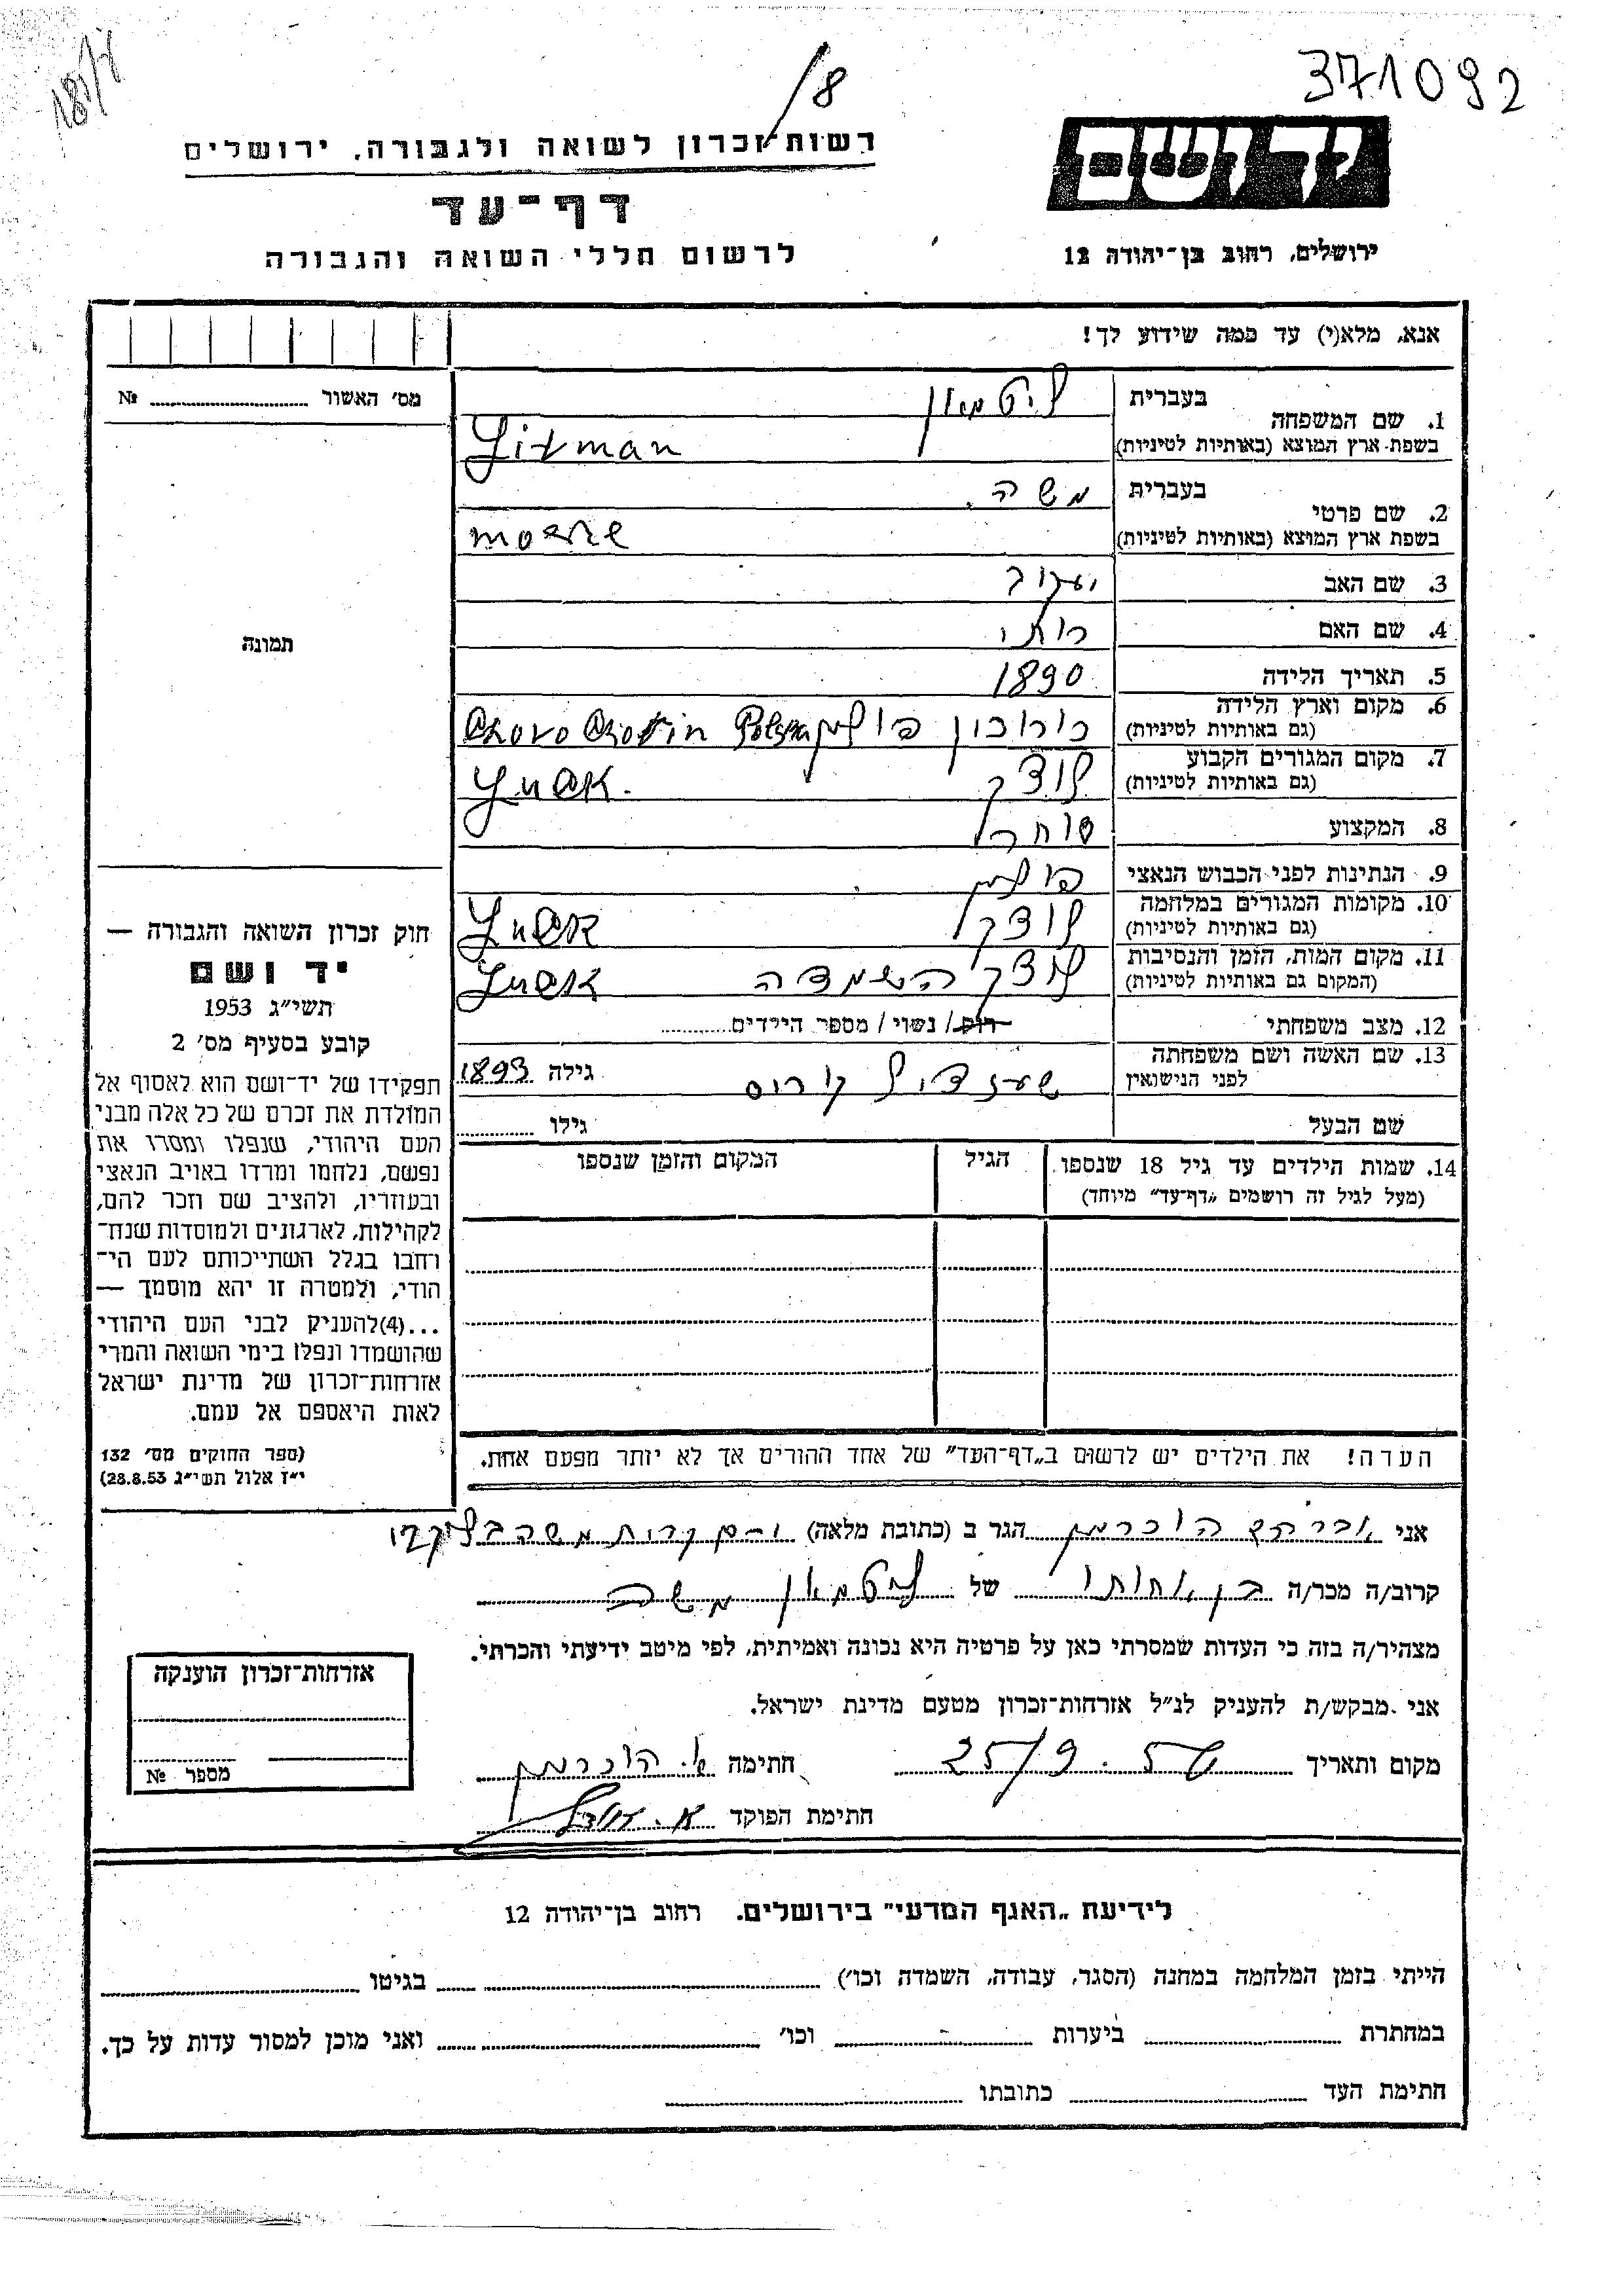 371092
8/
יד ושם
ירושלים, רחוב בן־יהודה 12
רשות־זכרון לשואה ולגבורה, ירושלים
דף־עד
לרשום חללי השואה והגבורה
אנא, מלא(י) עד כמה שידוע לך!
מס' האשור № ....................
1. שם המשפחה בעברית ליטמאן
בשפת ארץ המוצא (באותיות לטיניות) Litman
2. שם פרטי בעברית משה
בשפת ארץ המוצא (באותיות לטיניות)
3. שם האב יעקב
4. שם האם
5. תאריך הלידה 1890
6. מקום וארץ הלידה
(גם באותיות לטיניות)
7. מקום המגורים הקבוע לוצק
(גם באותיות לטיניות)
8. המקצוע סוחר
9. הנתינות לפני הכבוש הנאצי
10. מקומות המגורים במלחמה לוצק
(גם באותיות לטיניות)
11. מקום המות, הזמן והנסיבות לוצק השמדה
(המקום גם באותיות לטיניות)
12. מצב משפחתי רווק / נשוי / מספר הילדים............
13. שם האשה ושם משפחתה גילה 1893
לפני הנישואין
שם הבעל גילו ............
14. שמות הילדים עד גיל 18 שנספו הגיל המקום והזמן שנספו
(מעל לגיל זה רושמים „דף־עד" מיוחד)
תמונה
חוק זכרון השואה והגבורה —
יד ושם
תשי״ג 1953
קובע בסעיף מס' 2
תפקידו של יד־ושם הוא לאסוף אל
המולדת את זכרם של כל אלה מבני
העם היהודי, שנפלו ומסרו את
נפשם, נלחמו ומרדו באויב הנאצי
ובעוזריו, ולהציב שם וזכר להם,
לקהילות, לארגונים ולמוסדות שנח־
רחבו בגלל השתייכותם לעם הי־
הודי, ולמטרה זו יהא מוסמך —
...(4)להעניק לבני העם היהודי
שהושמדו ונפלו בימי השואה והמרי
אזרחות־זכרון של מדינת ישראל
לאות היאספם אל עמם.
(ספר החוקים מס' 132
י״ז אלול תשי״ג 28.8.53)
הערה! את הילדים יש לרשום ב„דף־העד" של אחד ההורים אך לא יותר מפעם אחת.
אני הוכרמן הגר ב (כתובת מלאה) קרית משה
קרוב/ה מכר/ה בן אחותו של ליטמאן משה
מצהיר/ה בזה כי העדות שמסרתי כאן על פרטיה היא נכונה ואמיתית, לפי מיטב ידיעתי והכרתי.
אני מבקש/ת להעניק לנ״ל אזרחות־זכרון מטעם מדינת ישראל.
מקום ותאריך 25/9 חתימה א. הוכרמן
חתימת הפוקד
אזרחות־זכרון הוענקה
מספר №
לידיעת „האגף המדעי" בירושלים. רחוב בן־יהודה 12
הייתי בזמן המלחמה במחנה (הסגר, עבודה, השמדה וכו') .................... בגיטו ....................
במחתרת .................... ביערות .................... וכו' .................... ואני מוכן למסור עדות על כך.
חתימת העד .................... כתובתו ....................